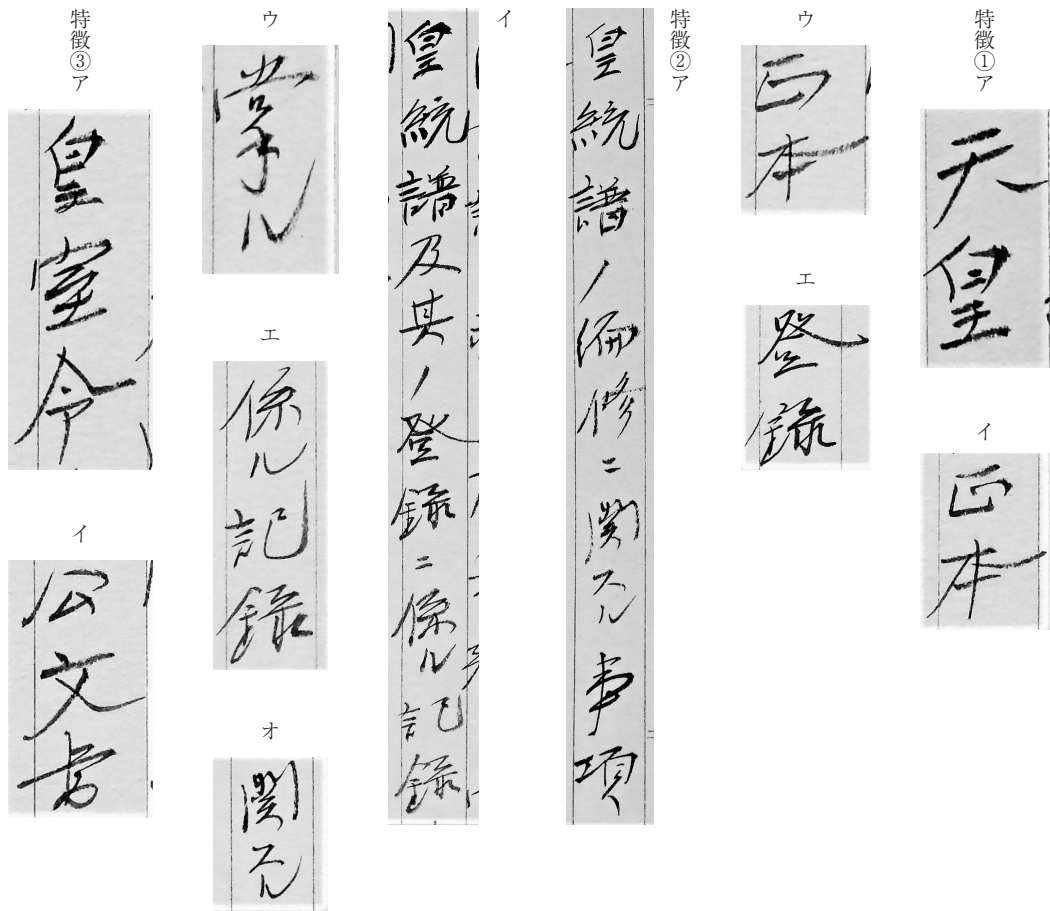 特徴①ア
天皇
イ
正本
ウ
正本
エ
登録
特徴②ア
皇統譜ノ編修ニ関スル事項
イ
皇統譜及其ノ登録ニ係ル記録
ウ
掌ル
エ
係ル記録
オ
関スル
特徴③ア
皇室令
イ
公文書